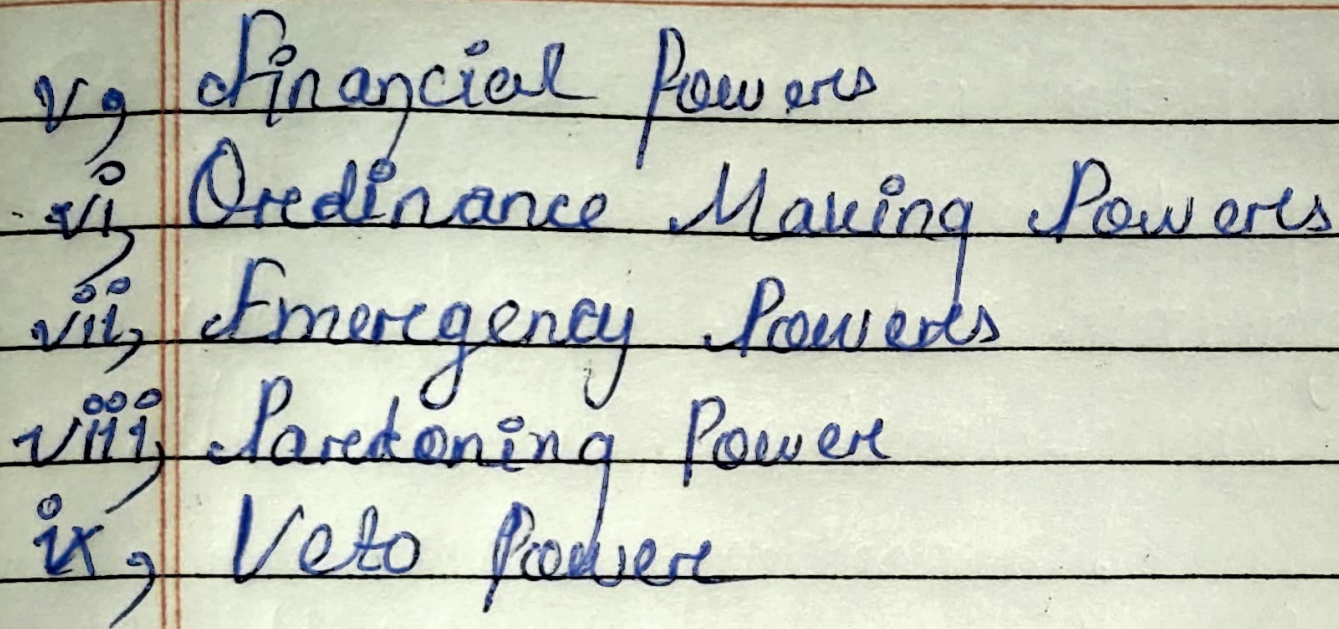 v, Financial Powers
vi, Ordinance Making Powers
vii, Emergency Powers
viii, Pardoning Power
ix, Veto Power